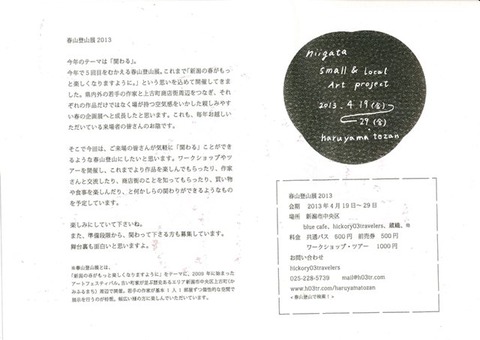 春山登山展 2013
今年のテーマは「関わる」。
今年で5回目をむかえる春山登山展。これまで「新潟の春がもっ
と楽しくなりますように。」という思いを込めて開催してきま
した。県内外の若手の作家と上古町商店街周辺をつなぎ、それ
ぞれの作品だけではなく場が持つ空気感をいかした親しみやす
い春の企画展へと成長したと思います。これも、毎年お越しい
ただいている来場者の皆さんのお陰です。
そこで今回は、ご来場の皆さんが気軽に「関わる」ことができ
るような春山登山にしたいと思います。ワークショップやツ
アーを開催し、これまでより作品を楽しんでもらったり、作家
さんと交流したり、商店街のことを知ってもらったり、買い物
や食事を楽しんだり、と何かしらの関わりができるようなもの
を予定しています。
楽しみにしていて下さいね。
また、準備段階から、関わって下さる方も募集しています。
舞台裏も面白いと思いますよ。
※春山登山展とは、
「新潟の春がもっと楽しくなりますように」をテーマに、2009 年に始まった
アートフェスティバル。古い町家が並ぶ歴史あるエリア新潟市中央区上古町（か
みふるまち）周辺で開催。若手の作家が基本 1 人 1 部屋ずつ個性的な空間で
展示を行うのが特徴。幅広い様の方に楽しんでいただいています。
niigata
small & local
Art project
2013. 4. 19 (金)
29 (金)
haruyama tozan
春山登山展 2013
会期 2013年4月19日〜29日
場所 新潟市中央区
blue cafe、hickory03travelers、蔵織、他
料金 共通パス 600円 前売券 500円
ワークショップ・ツアー 1000円
お問い合わせ
hickory03travelers
025-228-5739 mail@h03tr.com
www.h03tr.com/haruyamatozan
＜春山登山で検索！＞